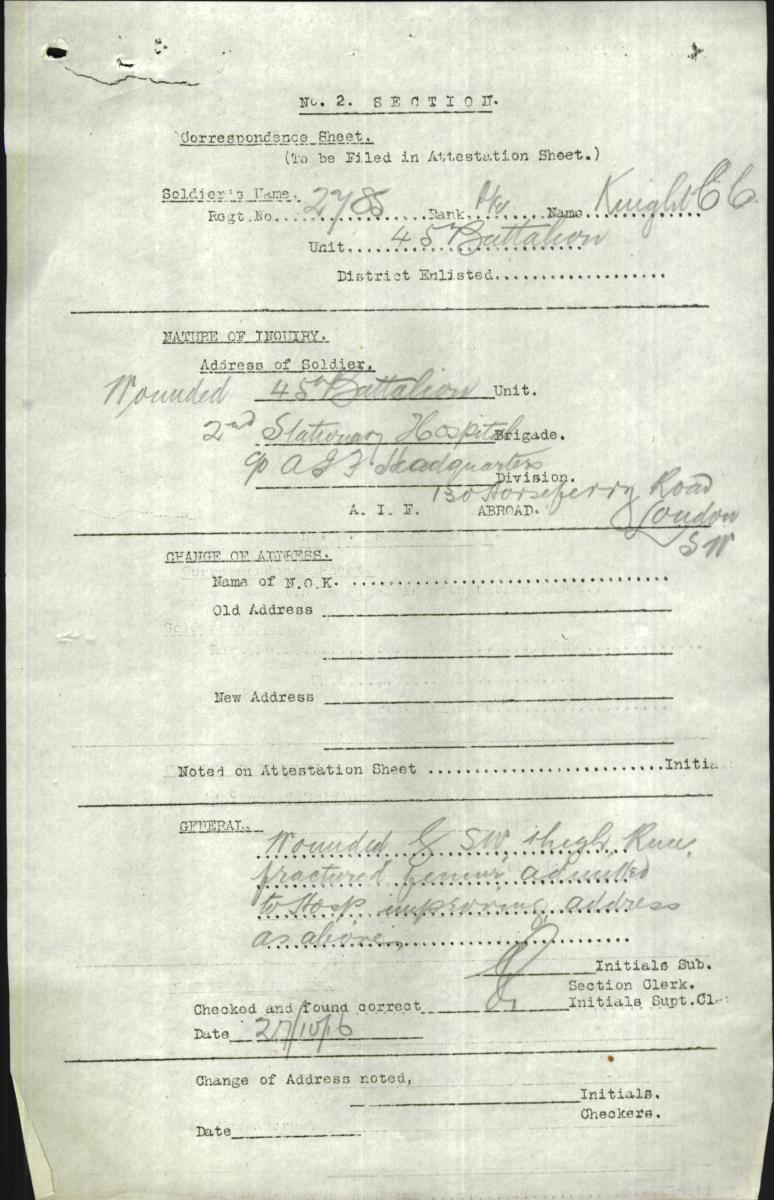 No. 2. SECTION.
Correspondence Sheet.
(To be Filed in Attestation Sheet.)
Soldier's Name.
Regt.No. 2785 Rank Pte Name Knight C C
Unit. 45th Battalion
District Enlisted.
NATURE OF INQUIRY.
Address of Soldier.
Wounded 45th Battalion Unit.
2nd Stationary Hospital Brigade.
c/o A I F Headquarters
Division.
130 Horseferry Road
A. I. F. ABROAD. London
S W
CHANGE OF ADDRESS.
Name of N.O.K.
Old Address
New Address
Noted on Attestation Sheet Initia
GENERAL.
Wounded G S W thigh Knee,
fractured femur admitted
to Hosp improving address
as above
Initials Sub.
Section Clerk.
Checked and found correct Initials Supt.Cle
Date 27/10/16
Change of Address noted,
Initials.
Checkers.
Date